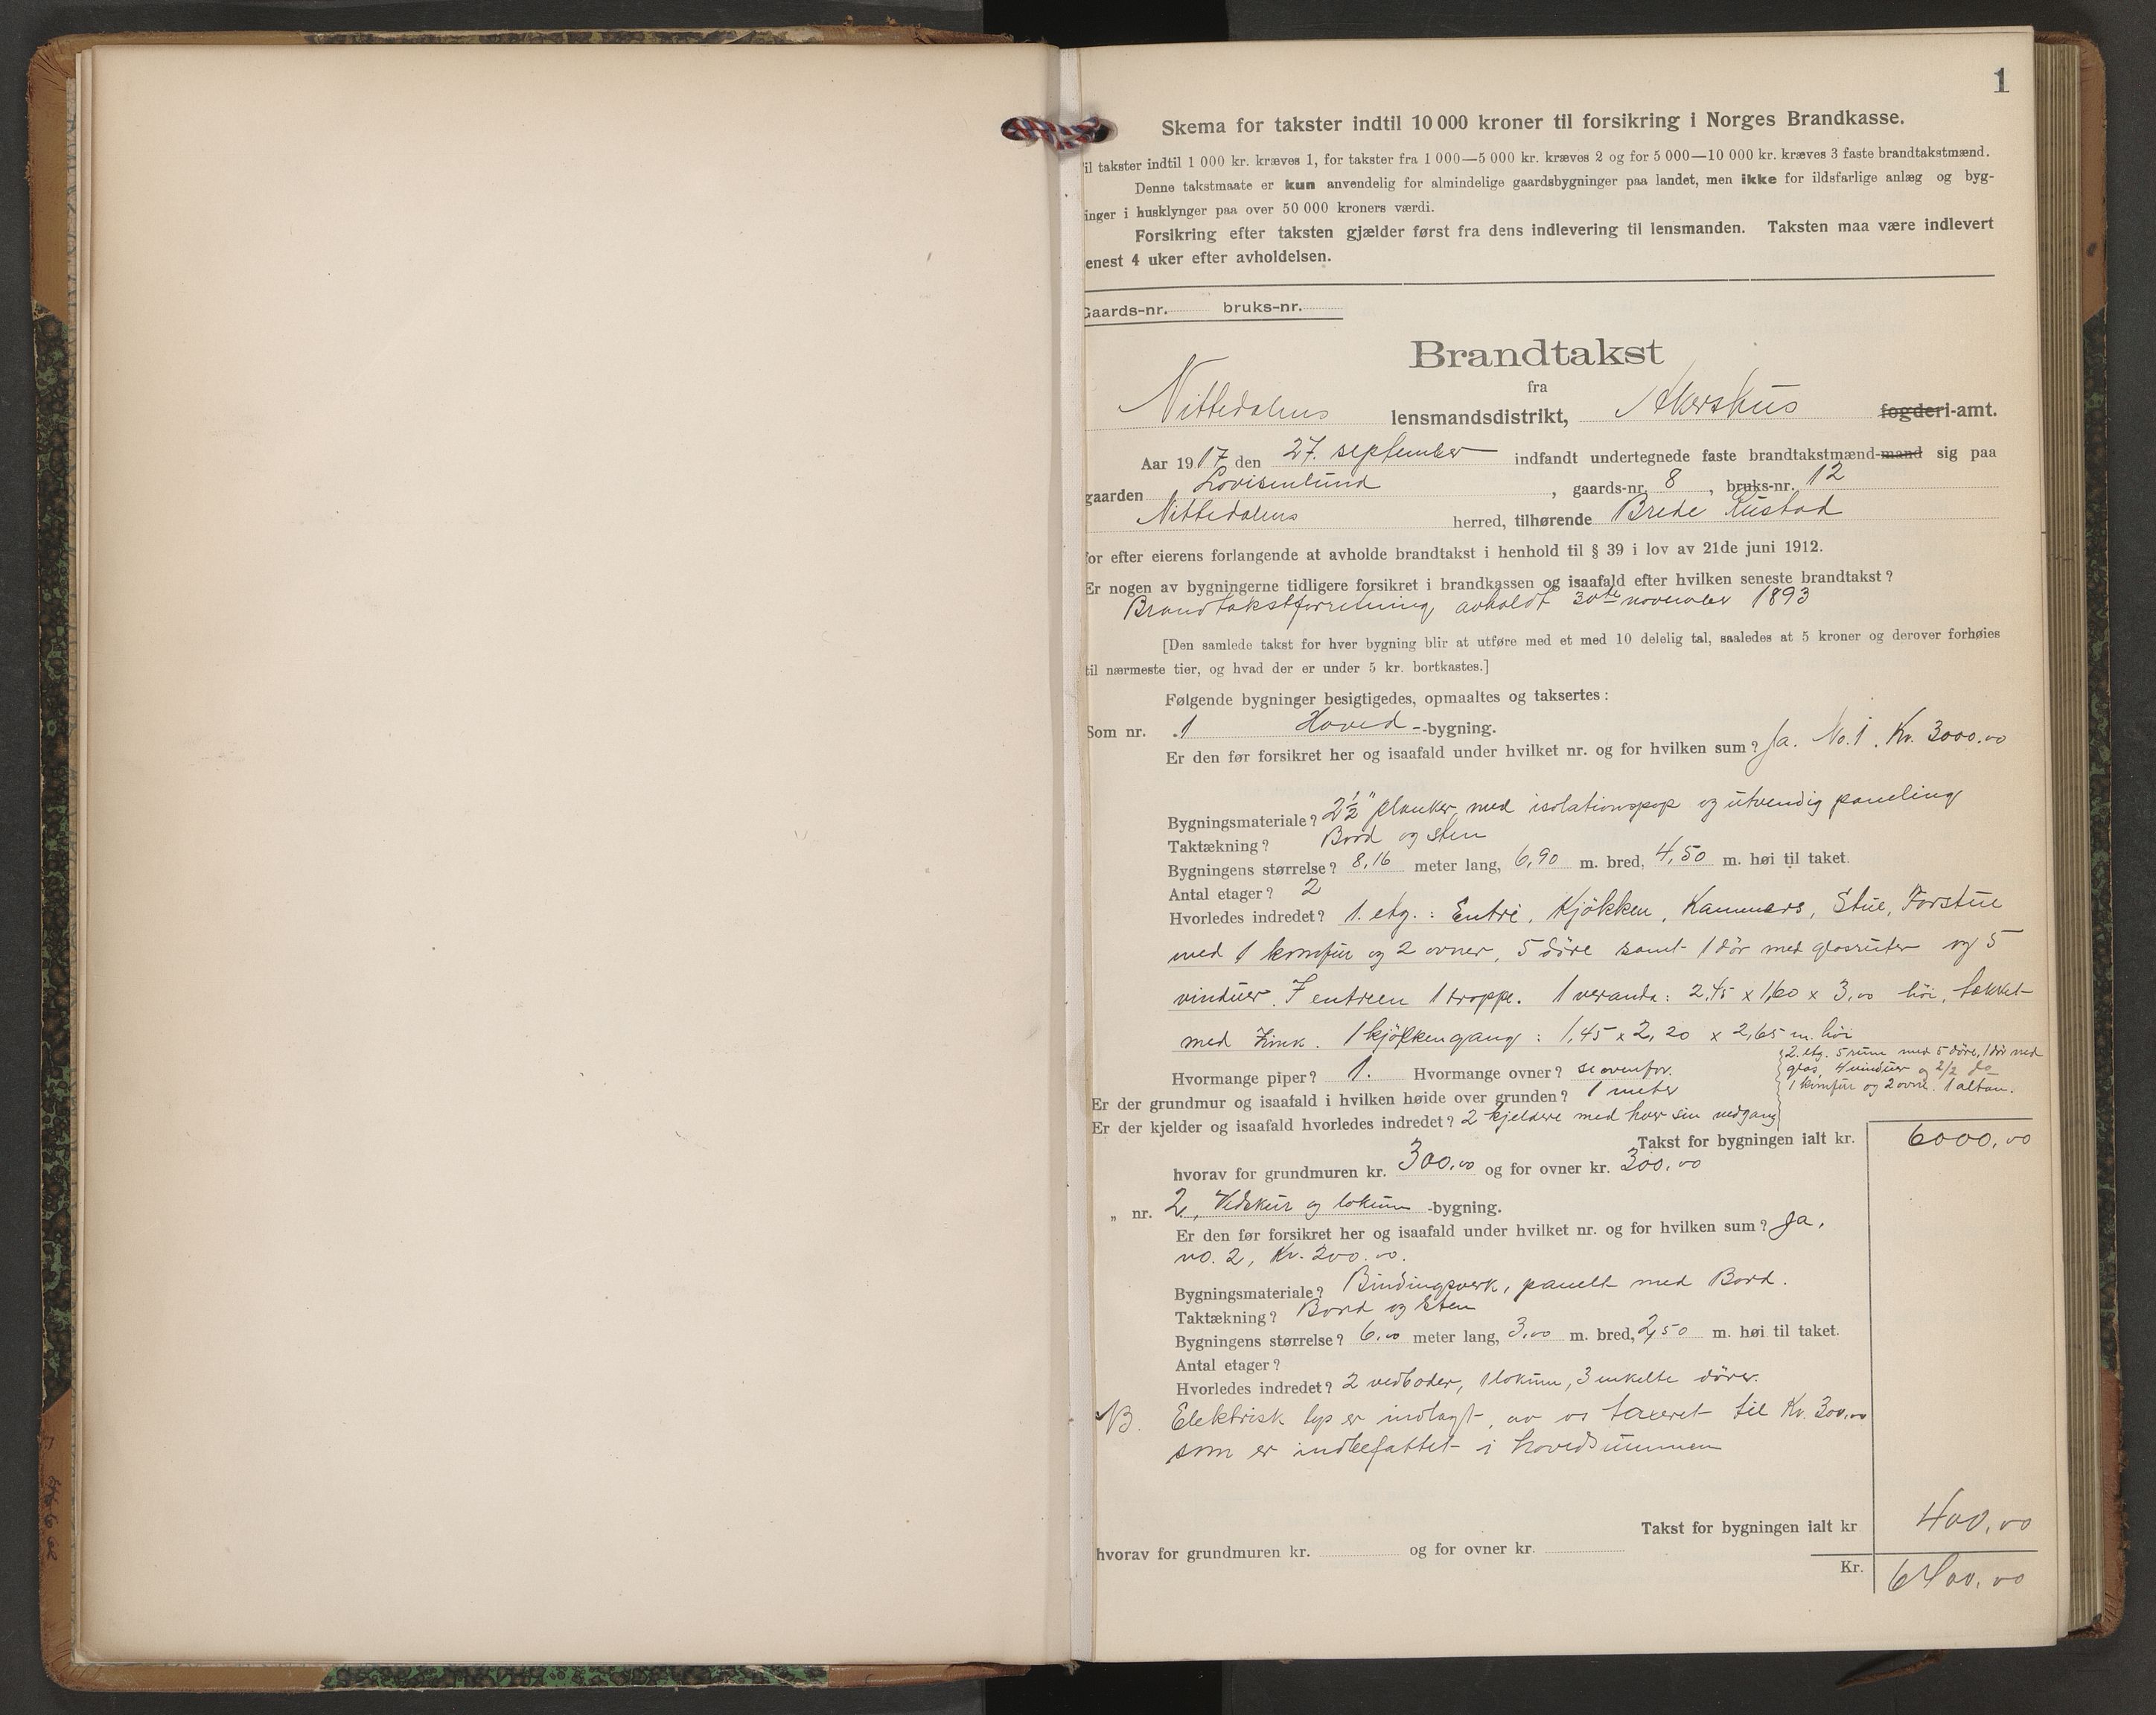 1
Skema for takster indtil 10 000 kroner til forsikring i Norges Brandkasse.
il takster indtil 1 000 kr. kræves 1, for takster fra 1 000—5 000 kr. kræves 2 og for 5 000—10 000 kr. kræves 3 faste brandtakstmænd.
Denne takstmaate er kun anvendelig for almindelige gaardsbygninger paa landet, men ikke for ildsfarlige anlæg og byg-
inger i husklynger paa over 50 000 kroners værdi.
Forsikring efter taksten gjælder først fra dens indlevering til lensmanden. Taksten maa være indlevert
enest 4 uker efter avholdelsen.
Gaards-nr. bruks-nr.
Brandtakst
fra
Nittedalens lensmandsdistrikt, Akershus fogderi-amt.
Aar 1917 den 27. september indfandt undertegnede faste brandtakstmænd-mand sig paa
gaarden Lovisenlund, gaards-nr. 8, bruks-nr. 12
Nittedalens herred, tilhørende Brede Rustad
for efter eierens forlangende at avholde brandtakst i henhold til § 39 i lov av 21de juni 1912.
Er nogen av bygningerne tidligere forsikret i brandkassen og isaafald efter hvilken seneste brandtakst?
Brandtakstforretning, avholdt 30te november 1893
[Den samlede takst for hver bygning blir at utføre med et med 10 delelig tal, saaledes at 5 kroner og derover forhøies
til nærmeste tier, og hvad der er under 5 kr. bortkastes.]
Følgende bygninger besigtigedes, opmaaltes og taksertes:
Som nr. 1 Hoved--bygning.
Er den før forsikret her og isaafald under hvilket nr. og for hvilken sum? Ja. No. 1. Kr. 3000.00
Bygningsmateriale? 2½" planker med isolationspap og utvendig paneling
Taktækning? Bord og sten
Bygningens størrelse? 8,16 meter lang, 6,90 m. bred, 4,50 m. høi til taket.
Antal etager? 2
Hvorledes indredet? 1. etg.: Entré, Kjökken, Kammers, Stue, Forstue
med 1 komfur og 2 ovner, 5 döre samt 1 dör med glasruter og 5
vinduer. I entreen 1 trappe. 1 veranda: 2,45 x 1,60 x 3,00 höi, tækket
med Zink. 1 kjökkengang: 1,45 x 2,20 x 2,65 m. höi
2. etg. 5 rum med 5 döre, 1 dör med
glas, 4 vinduer og 2/2 do
1 komfur og 2 ovne. 1 altan.
Hvormange piper? 1. Hvormange ovner? se ovenfor.
Er der grundmur og isaafald i hvilken høide over grunden? 1 meter
Er der kjelder og isaafald hvorledes indredet? 2 kjeldere med hver sin nedgang
Takst for bygningen ialt kr. 6000.00
hvorav for grundmuren kr. 300.00 og for ovner kr. 300.00
„ nr. 2, Vedskur og lokum -bygning.
Er den før forsikret her og isaafald under hvilket nr. og for hvilken sum? Ja,
no. 2, Kr. 200.00.
Bygningsmateriale? Bindingsverk, panelt med Bord.
Taktækning? Bord og Sten
Bygningens størrelse? 6.00 meter lang, 3.00 m. bred, 2,50 m. høi til taket.
Antal etager?
Hvorledes indredet? 2 vedboder, 1 lokum, 3 enkelte dörer.
NB. Elektrisk lys er indlagt, av os taxeret til Kr. 300.00
som er indbefattet i hovedsummen
Takst for bygningen ialt kr 400.00
hvorav for grundmuren kr. og for ovner kr.
Kr. 6400.00